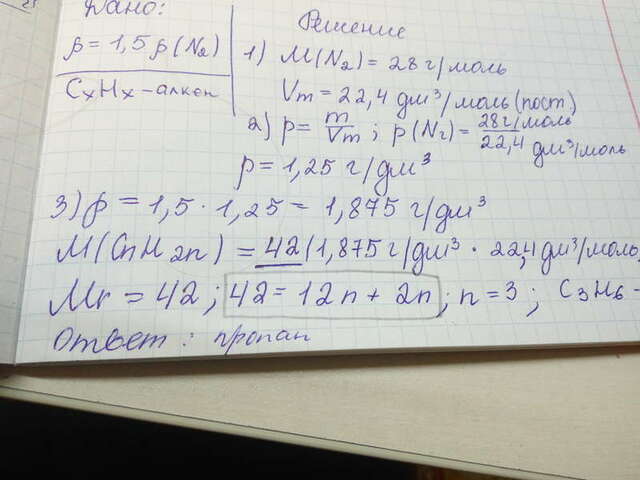 Дано:
ρ = 1,5 ρ(N₂)
CxHx - алкен
Решение
1) M(N₂) = 28 г/моль
Vm = 22,4 дм³/моль (пост)
2) ρ = m/Vm ; ρ(N₂) = 28 г/моль / 22,4 дм³/моль
ρ = 1,25 г/дм³
3) ρ = 1,5 · 1,25 = 1,875 г/дм³
M(CnH2n) = 42 (1,875 г/дм³ · 22,4 дм³/моль
Mr = 42 ; 42 = 12n + 2n ; n = 3 ; C₃H₆ -
Ответ : пропан